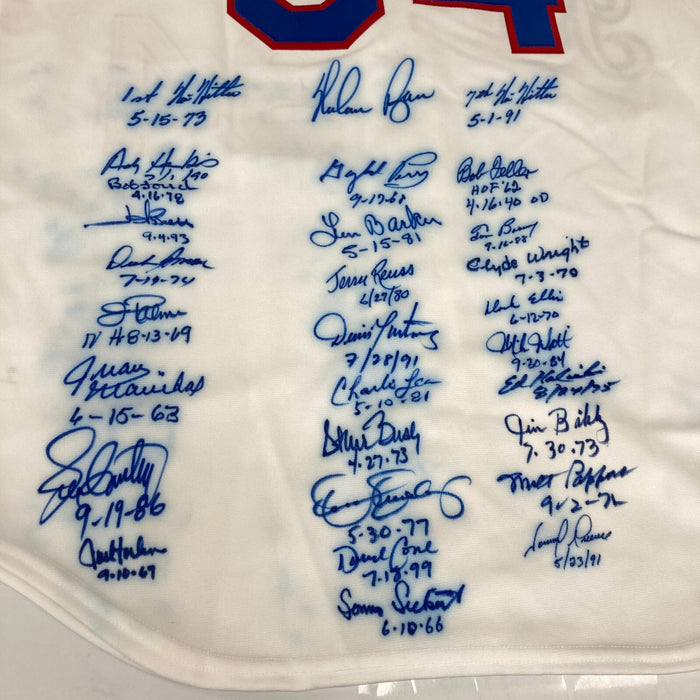 34
1st No Hitter
5-15-73
Nolan Ryan
7th No Hitter
5-1-91
Andy Hawkins
7/1/90
Bob Forsch
4.16.78
9.4.93
Dick Bosman
7-19-74
J Palmer
N H 8-13-69
Juan Marichal
6-15-63
9-19-86
Joel Horlen
9.10.67
Gaylord Perry
9-17-68
Len Barker
5-15-81
Jerry Reuss
6/27/80
Dennis Martinez
7/28/91
Charlie Lea
5-10-81
Steve Busby
4.27.73
Dennis Eckersley
5-30-77
David Cone
7-18-99
Sonny Siebert
6-10-66
Bob Feller
HOF '62
4-16-40 OD
Tom Browning
9-16-88
Clyde Wright
7-3-70
Dock Ellis
6-12-70
Mike Witt
9-30-84
Ed Halicki
8/24/75
Jim Bibby
7.30.73
Milt Pappas
9-2-72
Tommy Greene
5/23/91